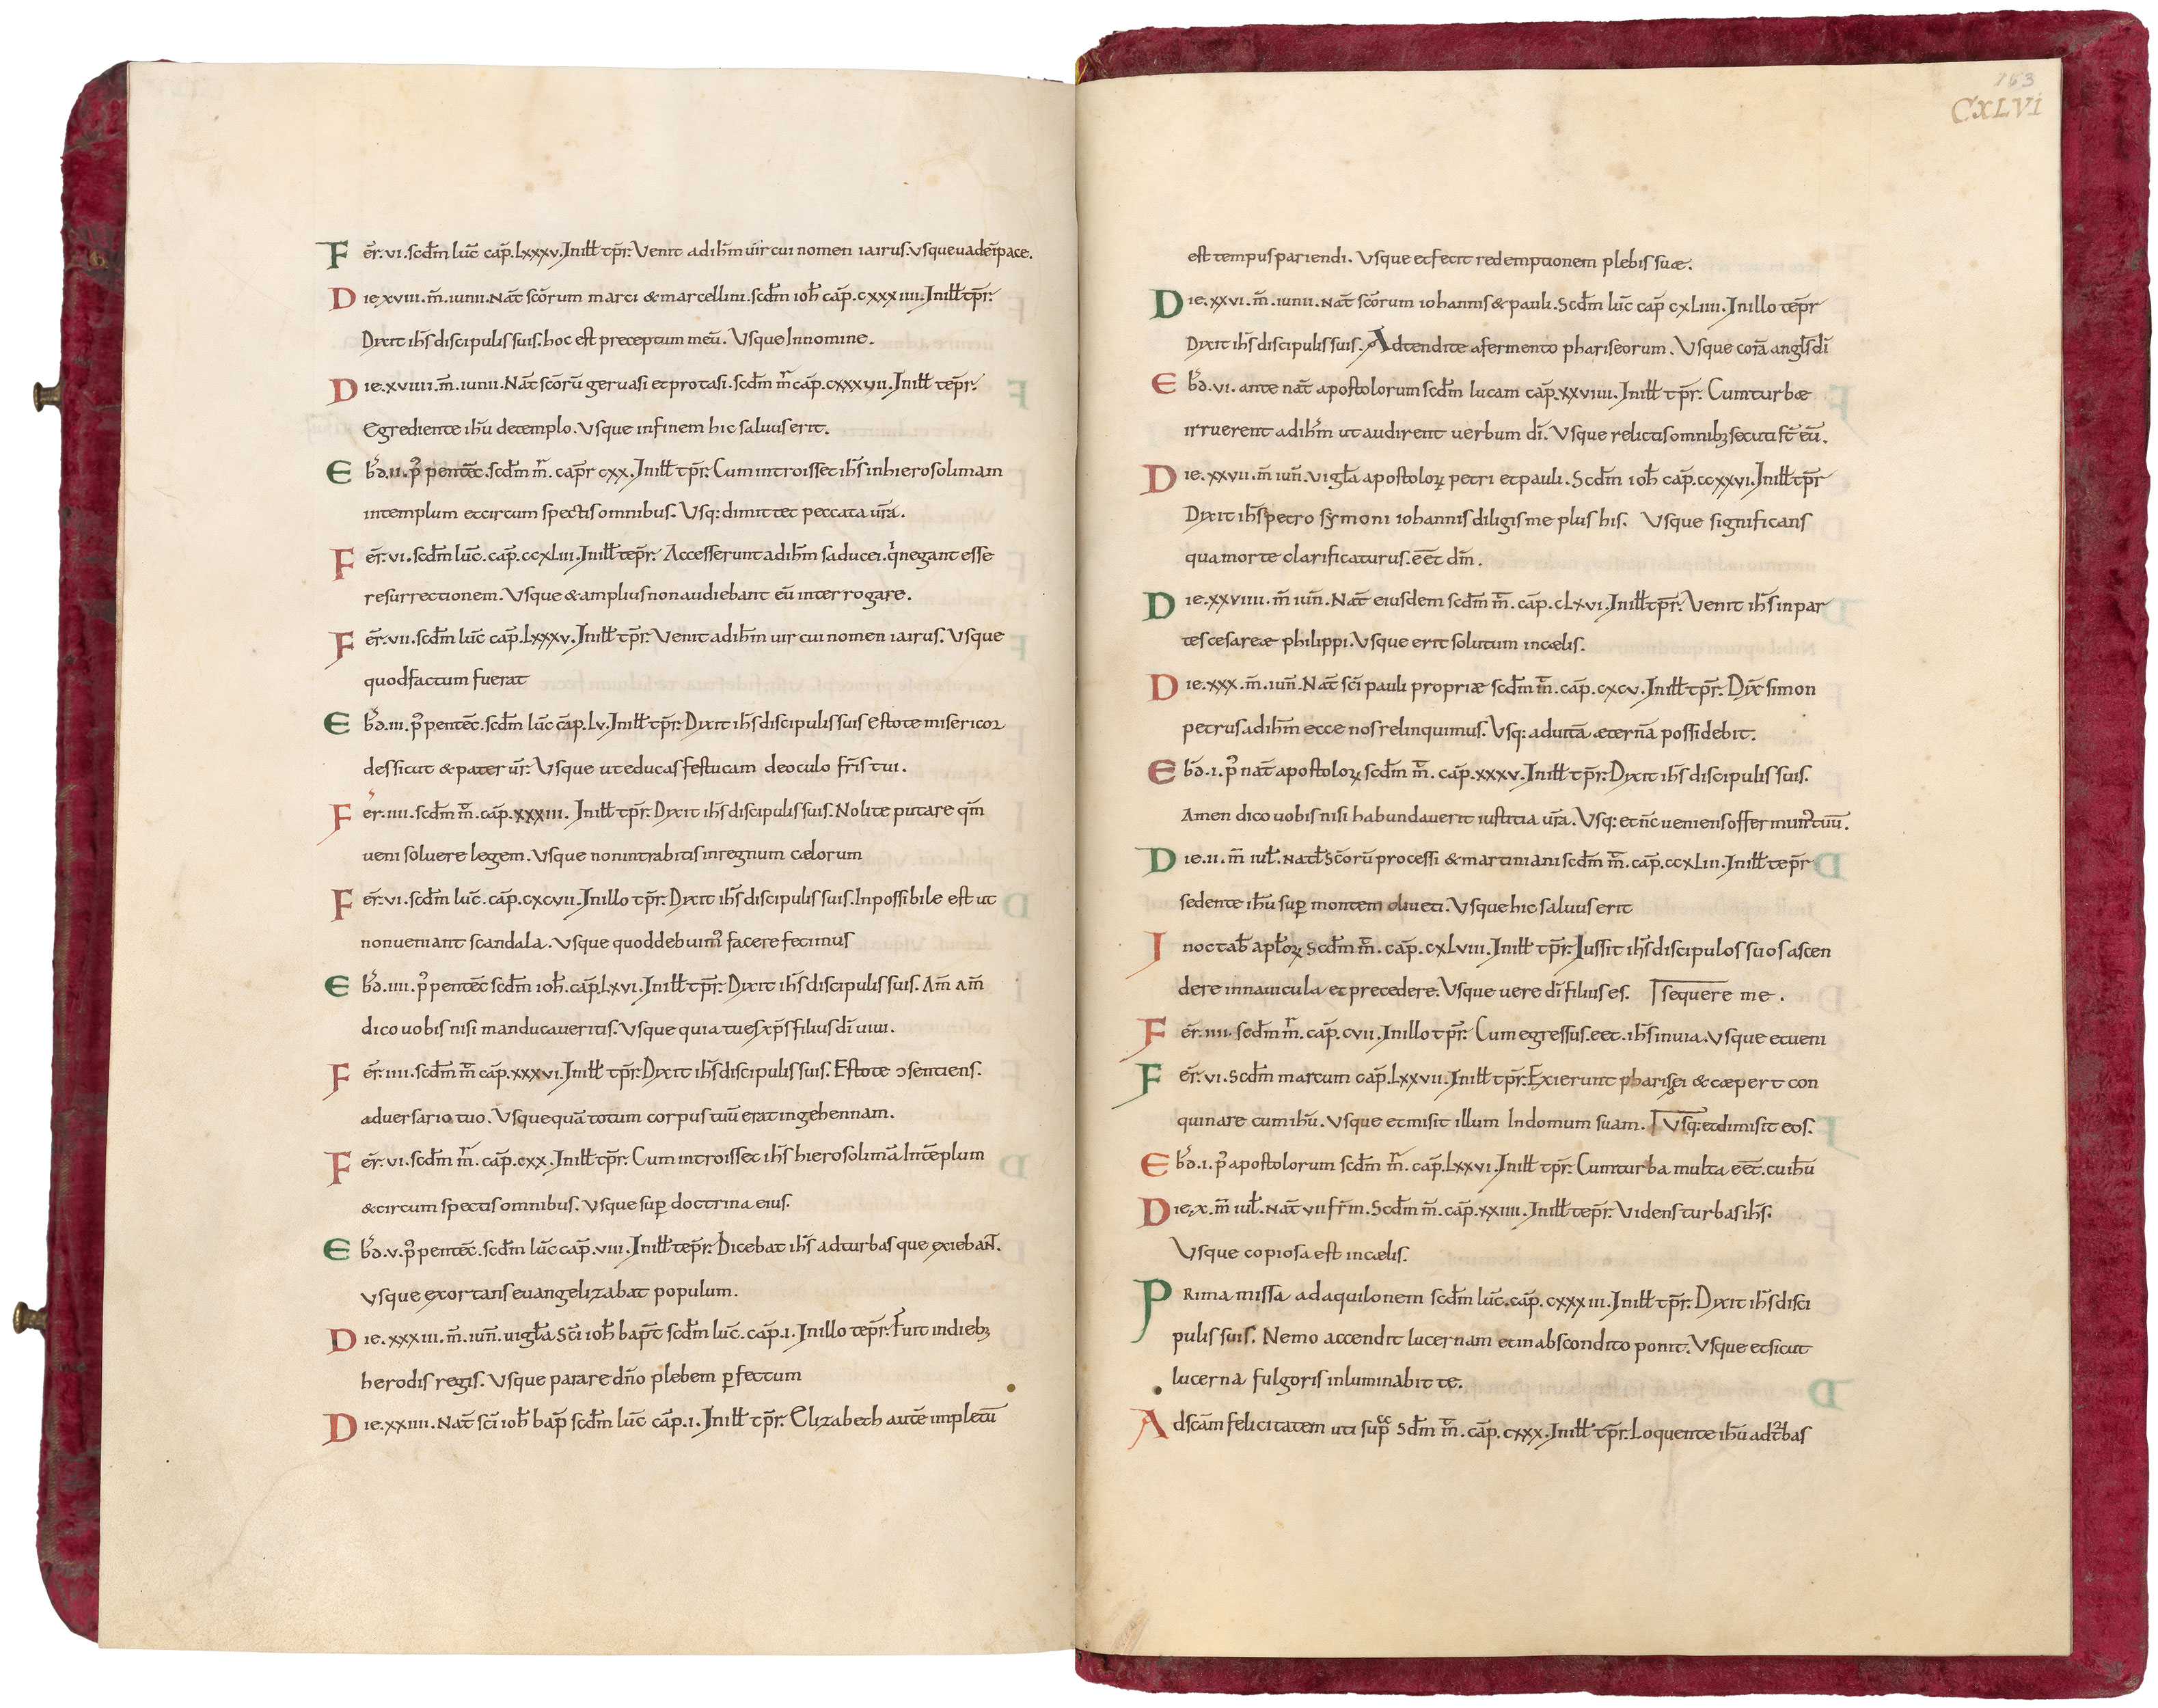 Fer̄. vi. scdm̄ luc̄ cap̄. Lxxxv. In ill̄ tp̄r. Venit ad ihm̄ uir cui nomen iairus. Vsque uade ī pace.
Die xviii. m̄. iunii. Nat̄ scōrum marci & marcellini. scdm̄ ioh̄ cap̄. cxxxiiii. In ill̄ tp̄r.
Dixit ihs̄ discipulis suis. hoc est preceptum meū. Vsque In nomine.
Die. xviiii. m̄. iunii. Nat̄ scōrū geruasi et protasi. scdm̄ mr̄ cap̄. cxxxvii. In ill̄ tep̄r.
Egrediente ihū de templo. Vsque in finem hic saluus erit.
Ebd̄. ii. p̄ pentēc. scdm̄ mr̄. cap̄r cxx. In ill̄ tp̄r. Cum introisset ihs̄ in hierosolimam
in templum et circum spectis omnibus. Vsq: dimittet peccata ur̄a.
Fer̄. vi. scdm̄ luc̄. cap̄. ccxLiii. In ill̄ tep̄r. Accesserunt ad ihm̄ saducei. q negant esse
resurrectionem. Vsque & amplius non audiebant eū interrogare.
Fer̄. vii. scdm̄ luc̄ cap̄. Lxxxv. In ill̄ tp̄r. Venit ad ihm̄ uir cui nomen iairus. Vsque
quod factum fuerat
Ebd̄. iii. p̄ pentec̄. scdm̄ luc̄ cap̄. Lv. In ill̄ tp̄r. Dixit ihs̄ discipulis suis Estote misericor
des sicut & pater ur̄. Vsque ut educas festucam de oculo fr̄is tui.
Fer̄. iiii. scdm̄ m̄. cap̄. xxxiii. In ill̄ tp̄r. Dixit ihs̄ discipulis suis. Nolite putare qm̄
ueni soluere legem. Vsque non intrabitis in regnum cælorum
Fer̄. vi. scdm̄ luc̄. cap̄. cxcvii. In illo tp̄r. Dixit ihs̄ discipulis suis. Inpossibile est ut
non ueniant scandala. Vsque quod debuim᾿ facere fecimus
Ebd̄. iiii. p̄ pentec̄ scdm̄ ioh̄. cap̄. Lxvi. In ill̄ tp̄r. Dixit ihs̄ discipulis suis. Am̄ am̄
dico uobis nisi manducaueritis. Vsque quia tu es xp̄s filius dī uiui.
Fer̄. iiii. scdm̄ m̄ cap̄. xxxvi. In ill̄ tp̄r. Dixit ihs̄ discipulis suis. Estote ɔsentiens.
aduersario tuo. Vsque quā totum corpus tuū erat in gehennam.
Fer̄. vi. scdm̄ mr̄. cap̄. cxx. In ill̄ tp̄r. Cum introisset ihs̄ hierosolimā In tēplum
& circum spectis omnibus. Vsque sup̄ doctrina eius.
Ebd̄. v. p̄ pentec̄. scdm̄ luc̄ cap̄. viii. In ill̄ tep̄r. Dicebat ihs̄ ad turbas que exiebant.
Vsque exortans euangelizabat populum.
Die. xxxiii. m̄. iun̄. uigl̄a scī ioh̄ bapt̄ scdm̄ luc̄. cap̄. i. In illo tep̄r. Fuit in dieb;
herodis regis. Vsque parare dn̄o plebem p̄fectum
Die. xxiiii. Nat̄ scī ioh̄ bap̄ scdm̄ luc̄ cap̄. i. In ill̄ tp̄r. Elizabeth autē impletū
163
CXLVi
est tempus pariendi. Vsque et fecit redemptionem plebis suæ.
Die. xxvi. m̄. iunii. Nat̄ scōrum iohannis & pauli. Scdm̄ luc̄ cap̄ cxLiiii. In illo tep̄r
Dixit ihs̄ discipulis suis. Adtendite a fermento phariseorum. Vsque corā angl̄s dī
Ebd̄. vi. ante nat̄ apostolorum scdm̄ lucam cap̄. xxviiii. In ill̄ tp̄r. Cum turbæ
irruerent ad ihm̄ ut audirent uerbum dī. Vsque relictis omnib; secuti st̄ eū.
Die. xxvii. m̄ iun̄. Vigl̄a apostoloꝝ petri et pauli. Scdm̄ ioh̄ cap̄. ccxxvi. In ill̄ tp̄r
Dixit ihs̄ petro symoni iohannis diligis me plus his. Vsque significans
qua morte clarificaturus. eēt dm̄.
Die. xxviiii. m̄ iun̄. Nat̄ eiusdem scdm̄ m̄. cap̄. cLxvi. In ill̄ tp̄r. Venit ihs̄ in par
tes cesareæ philippi. Vsque erit solutum in cælis.
Die. xxx. m̄. iun̄. Nat̄ scī pauli propriæ scdm̄ m̄. cap̄. cxcv. In ill̄ tp̄r. Dix̄ simon
petrus ad ihm̄ ecce nos relinquimus. Vsq: ad uitā æternā possidebit.
Ebd̄. i. p̄ nat̄ apostoloꝝ scdm̄ m̄. cap̄. xxxv. In ill̄ tp̄r. Dixit ihs̄ discipulis suis.
Amen dico uobis nisi habundauerit iustitia ur̄a. Vsq: et n̄c ueniens offer mun᾿ tuū.
Die. ii. m̄ iul̄. Natl̄ Scōrū processi & martiniani scdm̄ m̄. cap̄. ccxLiii. In ill̄ tep̄r
sedente ihū sup̄ montem oliueti. Vsque hic saluus erit
In octab̄ apl̄oꝝ scdm̄ m̄. cap̄. cxLviii. In ill̄ tp̄r. Iussit ihs̄ discipulos suos ascen
dere in nauicula et precedere. Vsque uere dī filius es. sequere me.
Fer̄. iiii. scdm̄ mr̄. cap̄. cvii. In illo tp̄r. Cum egressus. eet. ihs̄ in uia. Vsque et ueni
Fer̄. vi. Scdm̄ marcum cap̄. Lxxvii. In ill̄ tp̄r. Exierunt pharisei & cæpert con
quinare cum ihū. Vsque et misit illum In domum suam. Vsq: et dimisit eos.
Ebd̄. i. p̄ apostolorum scdm̄ mr̄. cap̄. Lxxvi. In ill̄ tp̄r. Cum turba multa eēt. cu ihū
Die. x. m̄ iul̄. Nat̄ vii fr̄m. Scdm̄ m̄. cap̄. xxiiii. In ill̄ tep̄r. Videns turbas ihs̄.
Vsque copiosa est in cælis.
Prima missa ad aquilonem scdm̄ luc̄. cap̄. cxxxiii. In ill̄ tp̄r. Dixit ihs̄ disci
pulis suis. Nemo accendit lucernam et in abscondito ponit. Vsque et sicut
lucerna fulgoris inluminabit te.
Ad scām felicitatem uti sup̄ Sdm̄ m̄. cap̄. cxxx. In ill̄ tp̄r. Loquente ihū ad t̄bas